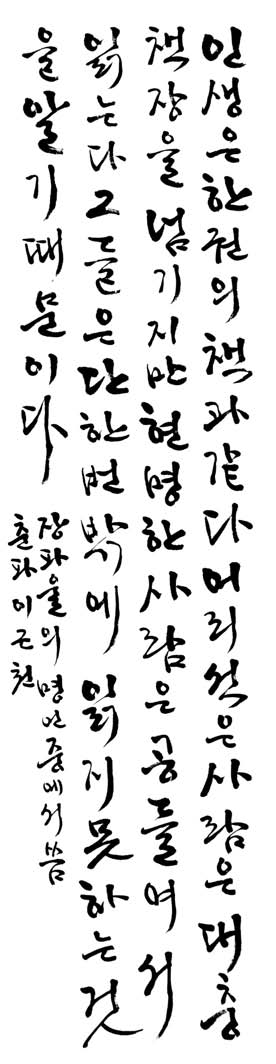 인생은한권의책과같다어리석은사람은대충
책장을넘기지만현명한사람은공들여서
읽는다그들은단한번밖에읽지못하는것
을알기때문이다
장파울의명언중에서씀
춘파이근천